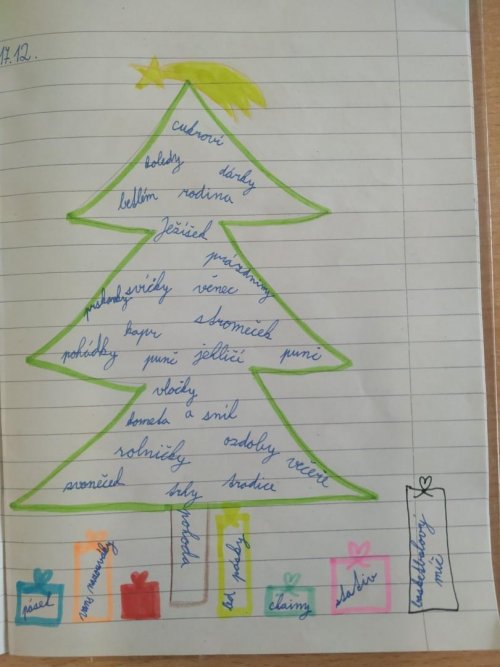 17.12.
cukroví
koledy
dárky
betlém rodina
Ježíšek
prázdniny
prskavky svíčky věnec
kapr stromeček
pohádky punč jehličí punč
vločky
kometa a sníh
rolničky ozdoby večeře
zvoneček trhy tradice
pohoda
pásek
led pásky
stativ
basketbalový
míč